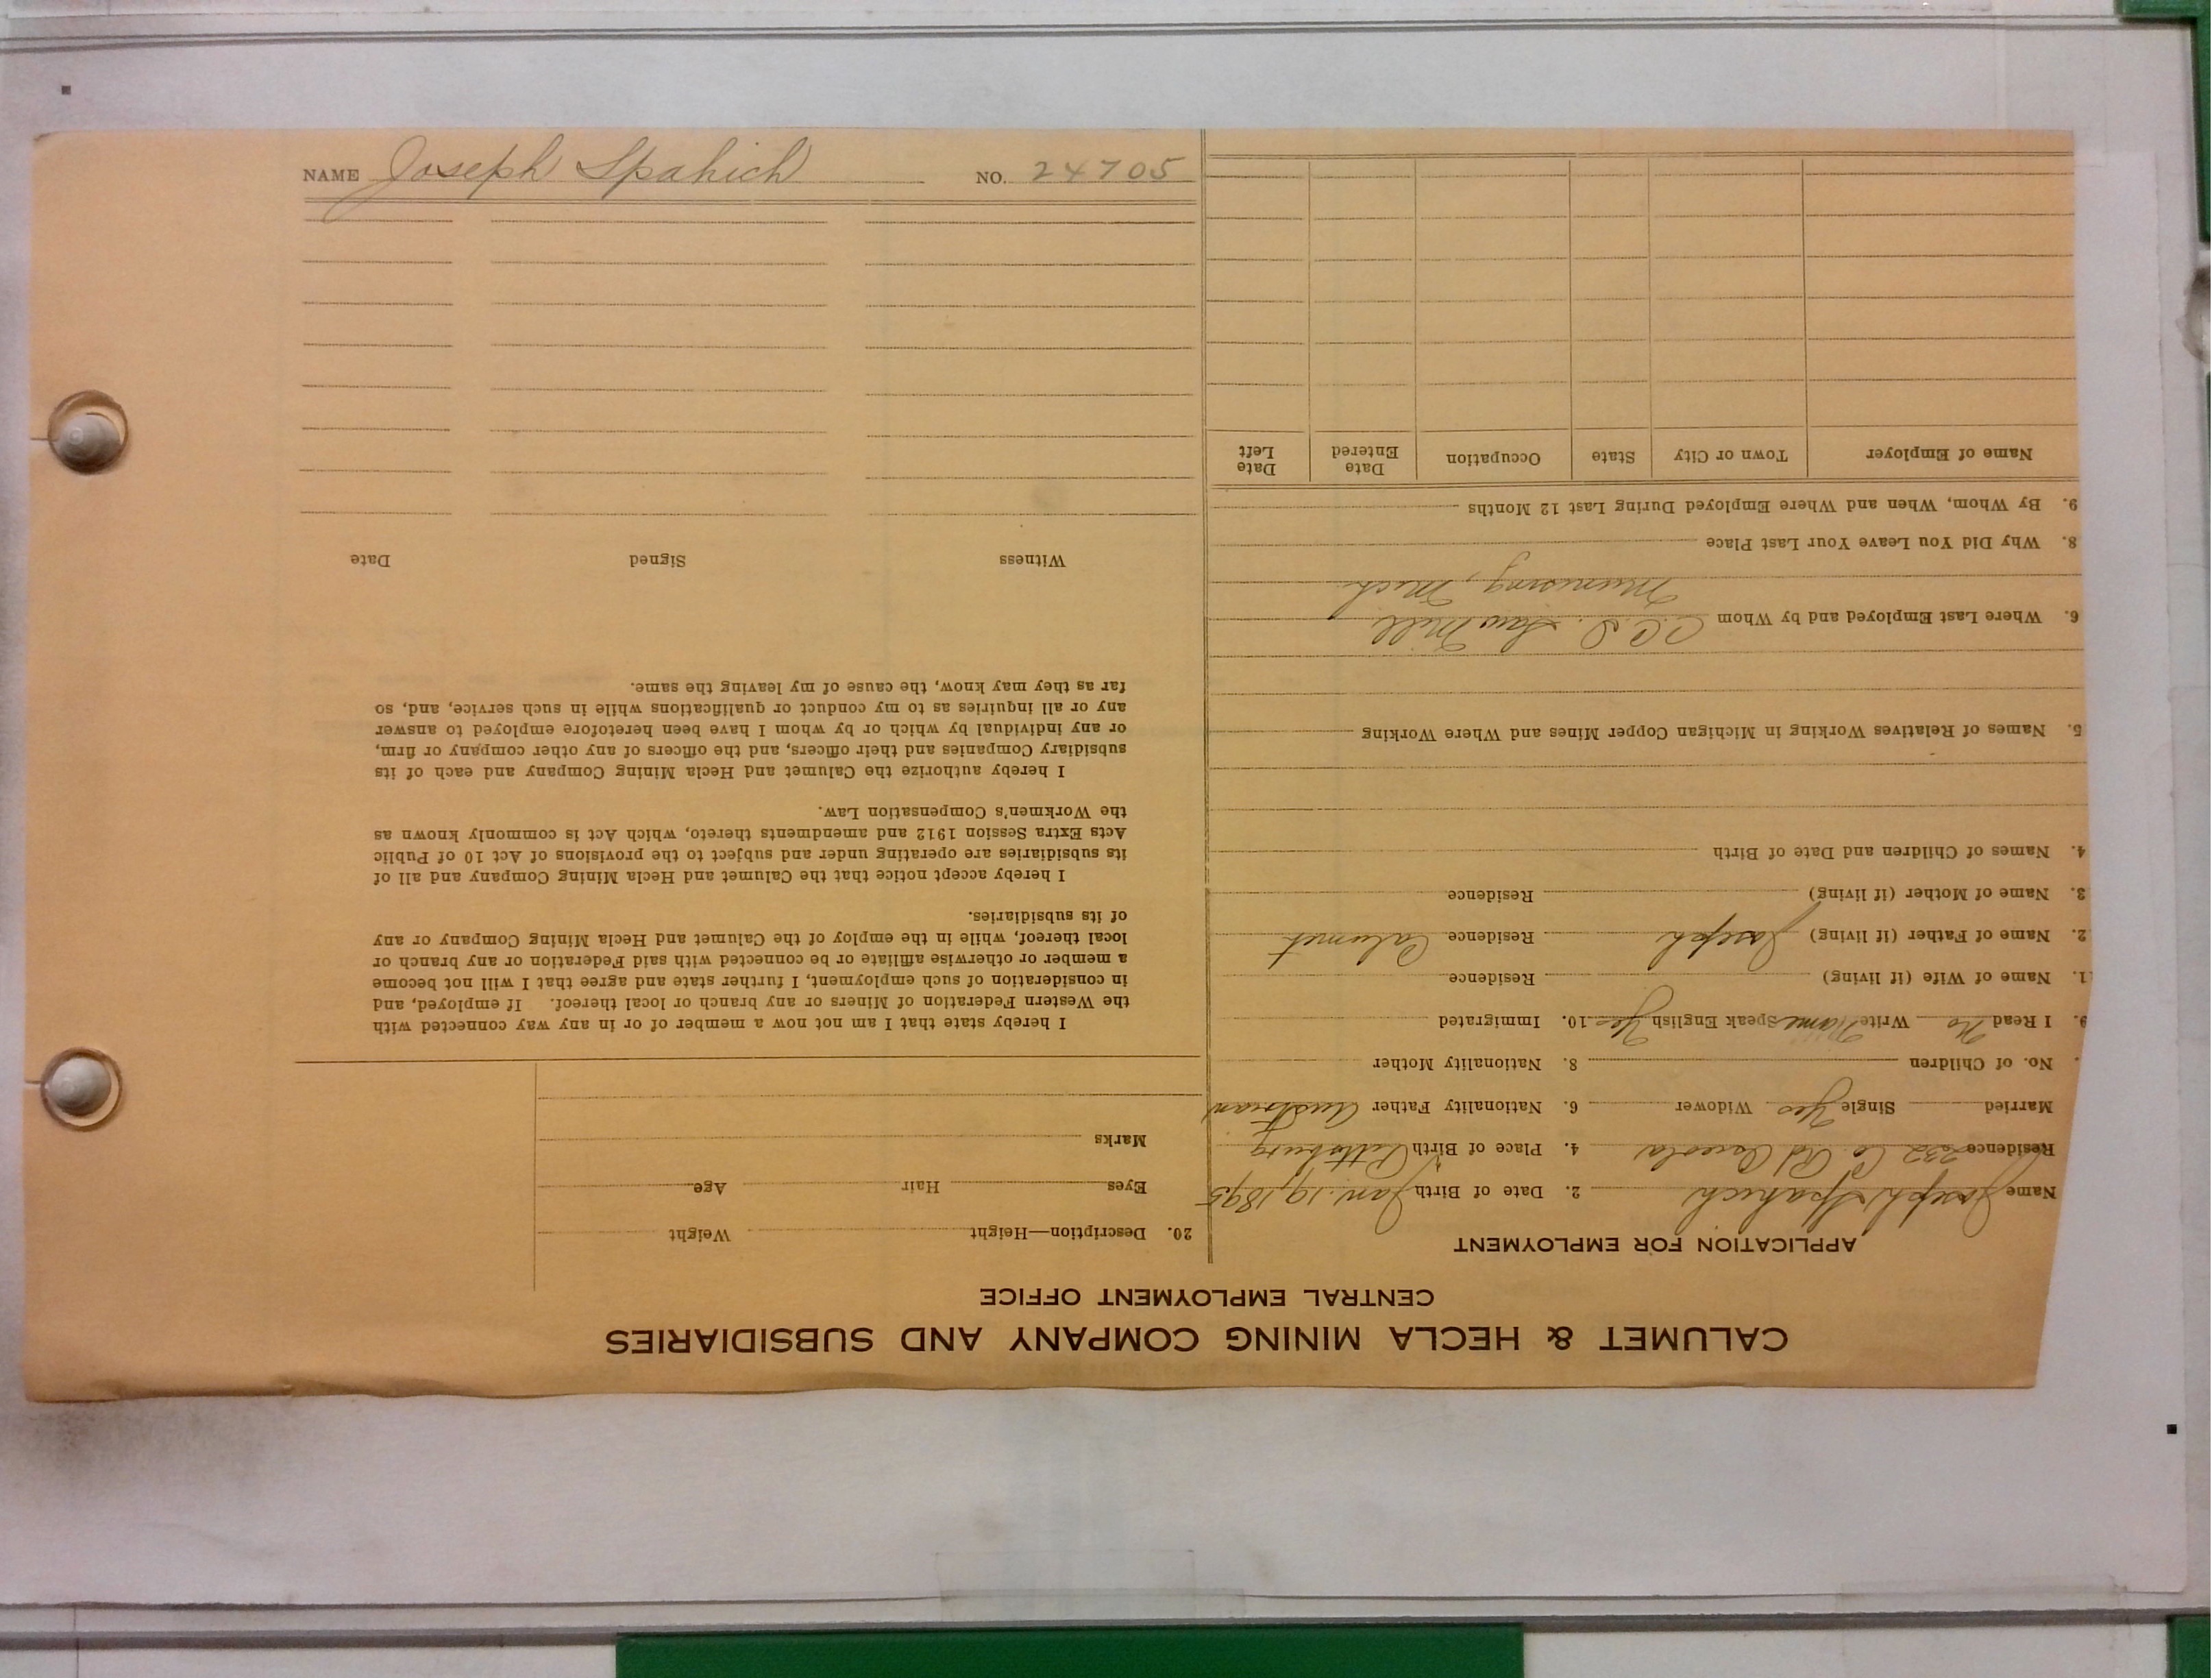 CALUMET & HECLA MINING COMPANY AND SUBSIDIARIES
CENTRAL EMPLOYMENT OFFICE
APPLICATION FOR EMPLOYMENT
Name Joseph Spahich 2. Date of Birth Jan. 19, 1895
Residence 232 Co Rd Osceola 4. Place of Birth Pittsburg
Married Single Yes Widower 6. Nationality Father Austrian
No. of Children 8. Nationality Mother
9. I Read No Write Name Speak English Yes 10. Immigrated
1. Name of Wife (if living) Residence
2. Name of Father (if living) Joseph Residence Calumet
3. Name of Mother (if living) Residence
4. Names of Children and Date of Birth
5. Names of Relatives Working in Michigan Copper Mines and Where Working
6. Where Last Employed and by Whom Saw Mill
Munising, Mich
8. Why Did You Leave Your Last Place
9. By Whom, When and Where Employed During Last 12 Months
Name of Employer Town or City State Occupation Date Entered Date Left
20. Description—Height Weight
Eyes Hair Age
Marks
I hereby state that I am not now a member of or in any way connected with
the Western Federation of Miners or any branch or local thereof. If employed, and
in consideration of such employment, I further state and agree that I will not become
a member or otherwise affiliate or be connected with said Federation or any branch or
local thereof, while in the employ of the Calumet and Hecla Mining Company or any
of its subsidiaries.
I hereby accept notice that the Calumet and Hecla Mining Company and all of
its subsidiaries are operating under and subject to the provisions of Act 10 of Public
Acts Extra Session 1912 and amendments thereto, which Act is commonly known as
the Workmen's Compensation Law.
I hereby authorize the Calumet and Hecla Mining Company and each of its
subsidiary Companies and their officers, and the officers of any other company or firm,
or any individual by which or by whom I have been heretofore employed to answer
any or all inquiries as to my conduct or qualifications while in such service, and, so
far as they may know, the cause of my leaving the same.
Witness Signed Date
NAME Joseph Spahich NO. 24705